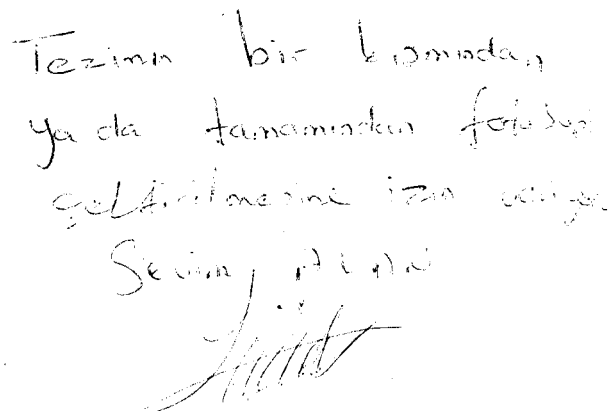 Tezinin bir kısmından,
ya da tamamından fotokopi
çektirilmesine izin veriyorum
Sevim